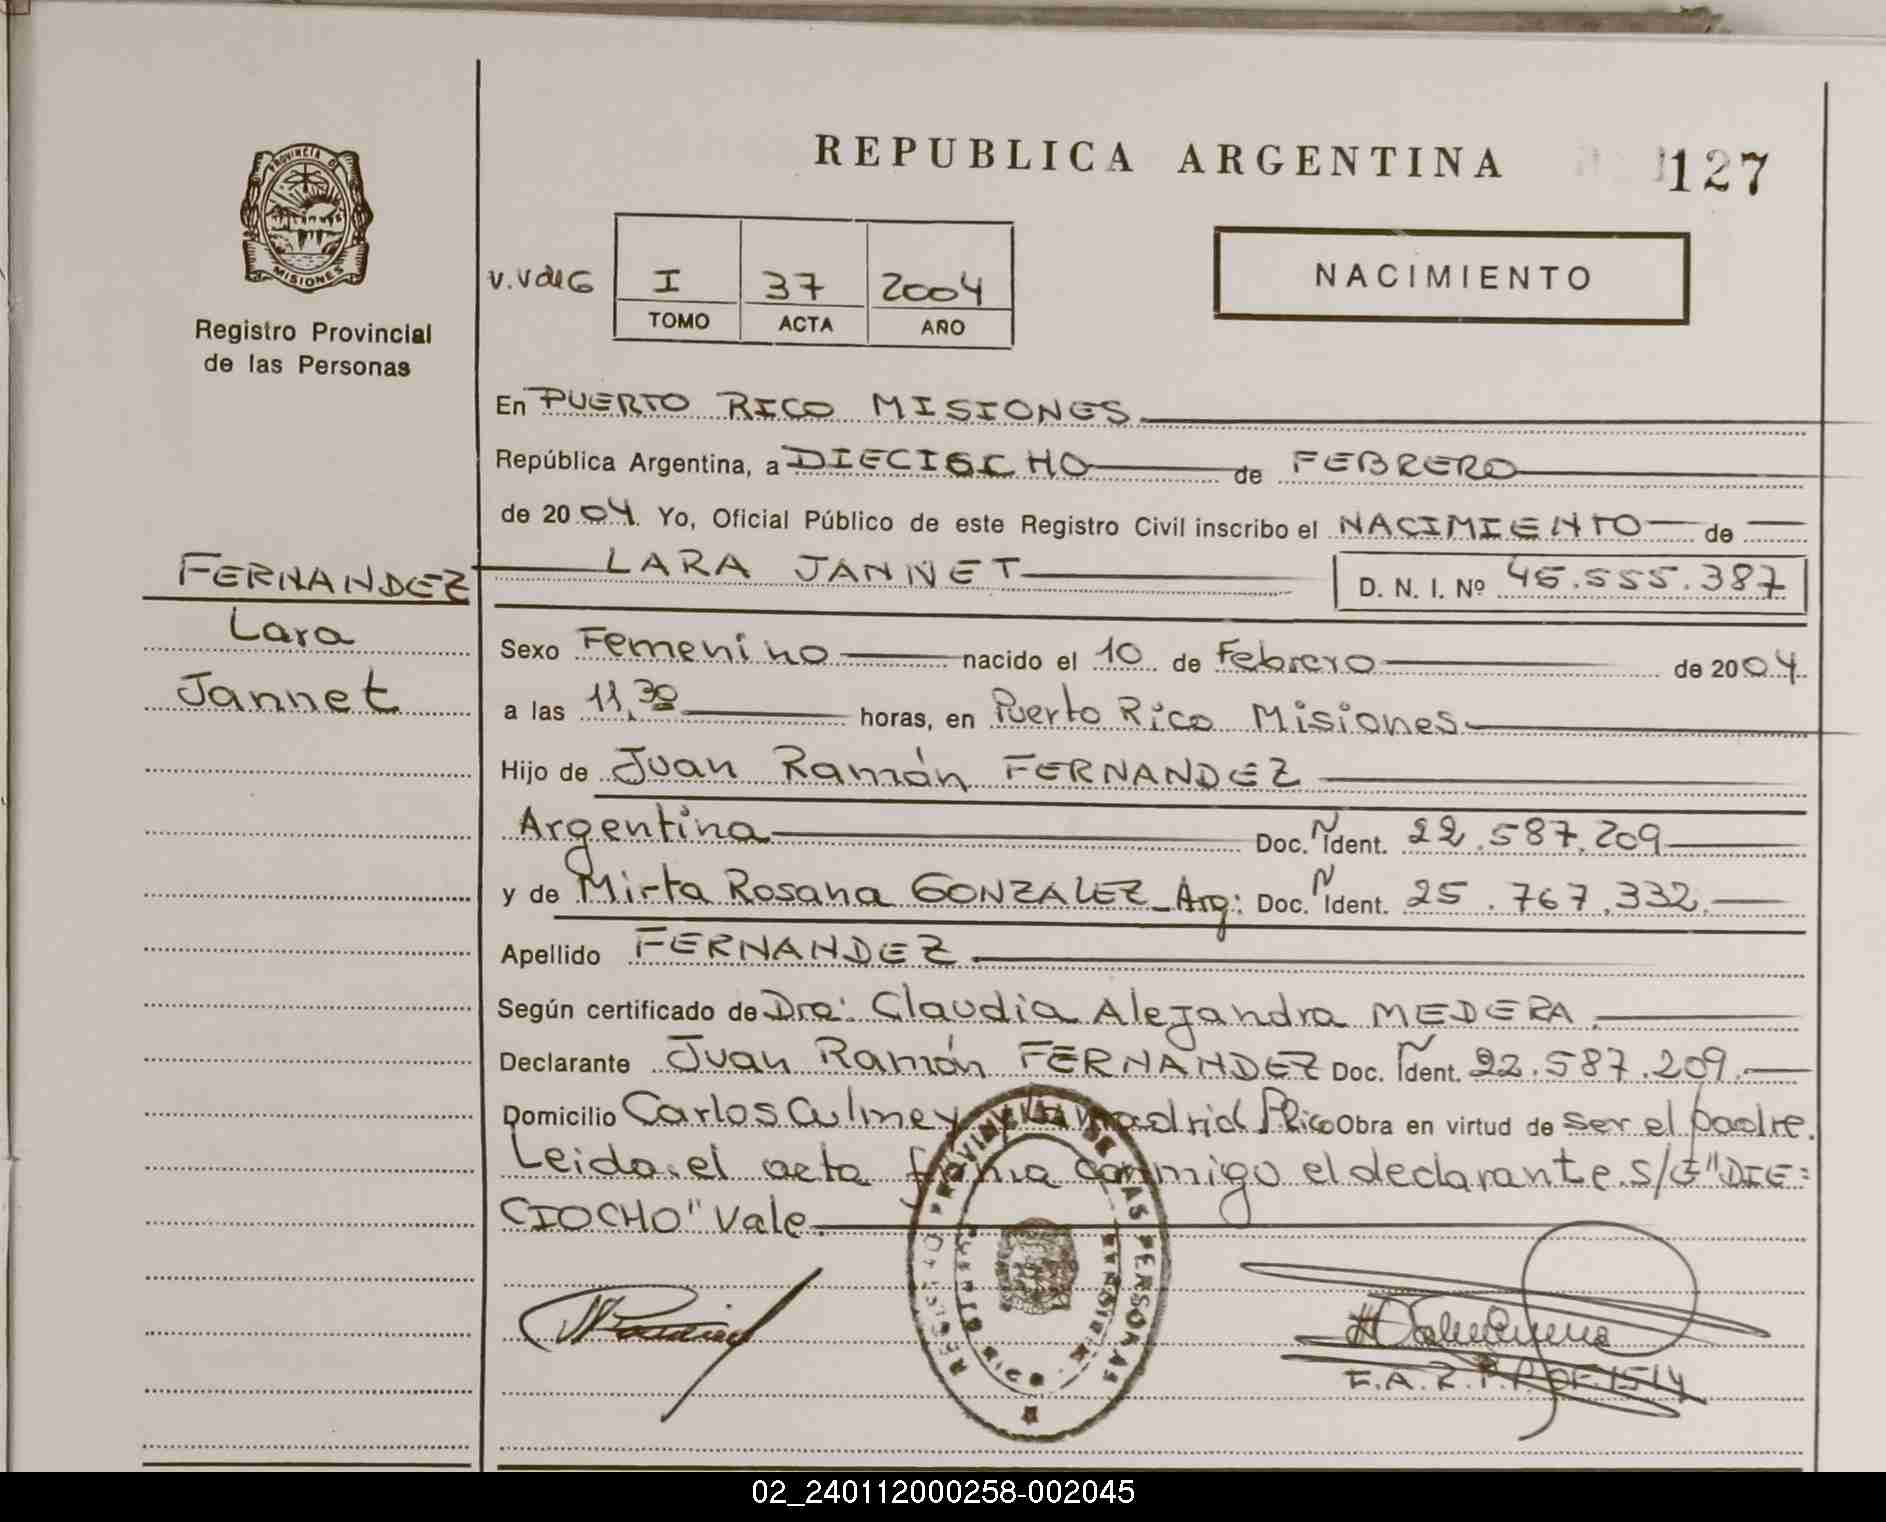 REPUBLICA ARGENTINA
127
PROVINCIA DE
MISIONES
Registro Provincial
de las Personas
V.Vdeg
I 37 2004
TOMO ACTA AÑO
NACIMIENTO
En PUERTO RICO MISIONES
República Argentina, a DIECIOCHO de FEBRERO
de 2004. Yo, Oficial Público de este Registro Civil inscribo el NACIMIENTO de
FERNANDEZ
Lara
Jannet
LARA JANNET D. N. I. Nº 45.555.387
Sexo Femenino nacido el 10 de Febrero de 2004.
a las 11,30 horas, en Puerto Rico Misiones
Hijo de Juan Ramón FERNANDEZ
Argentina Doc. Ñ Ident. 22.587.209
y de Mirta Rosana GONZALEZ_Arg: Doc. Ñ Ident. 25.767.332.
Apellido FERNANDEZ
Según certificado de Dra: Claudia Alejandra MEDERA.
Declarante Juan Ramón FERNANDEZ Doc. Ñ Ident. 22.587.209.
Domicilio Carlos Culmey y Obra en virtud de ser el padre.
Leida el acta firma conmigo el declarante. S/E "DIE=
CIOCHO" Vale.
REGISTRO PROVINCIAL DE LAS PERSONAS
02_240112000258-002045